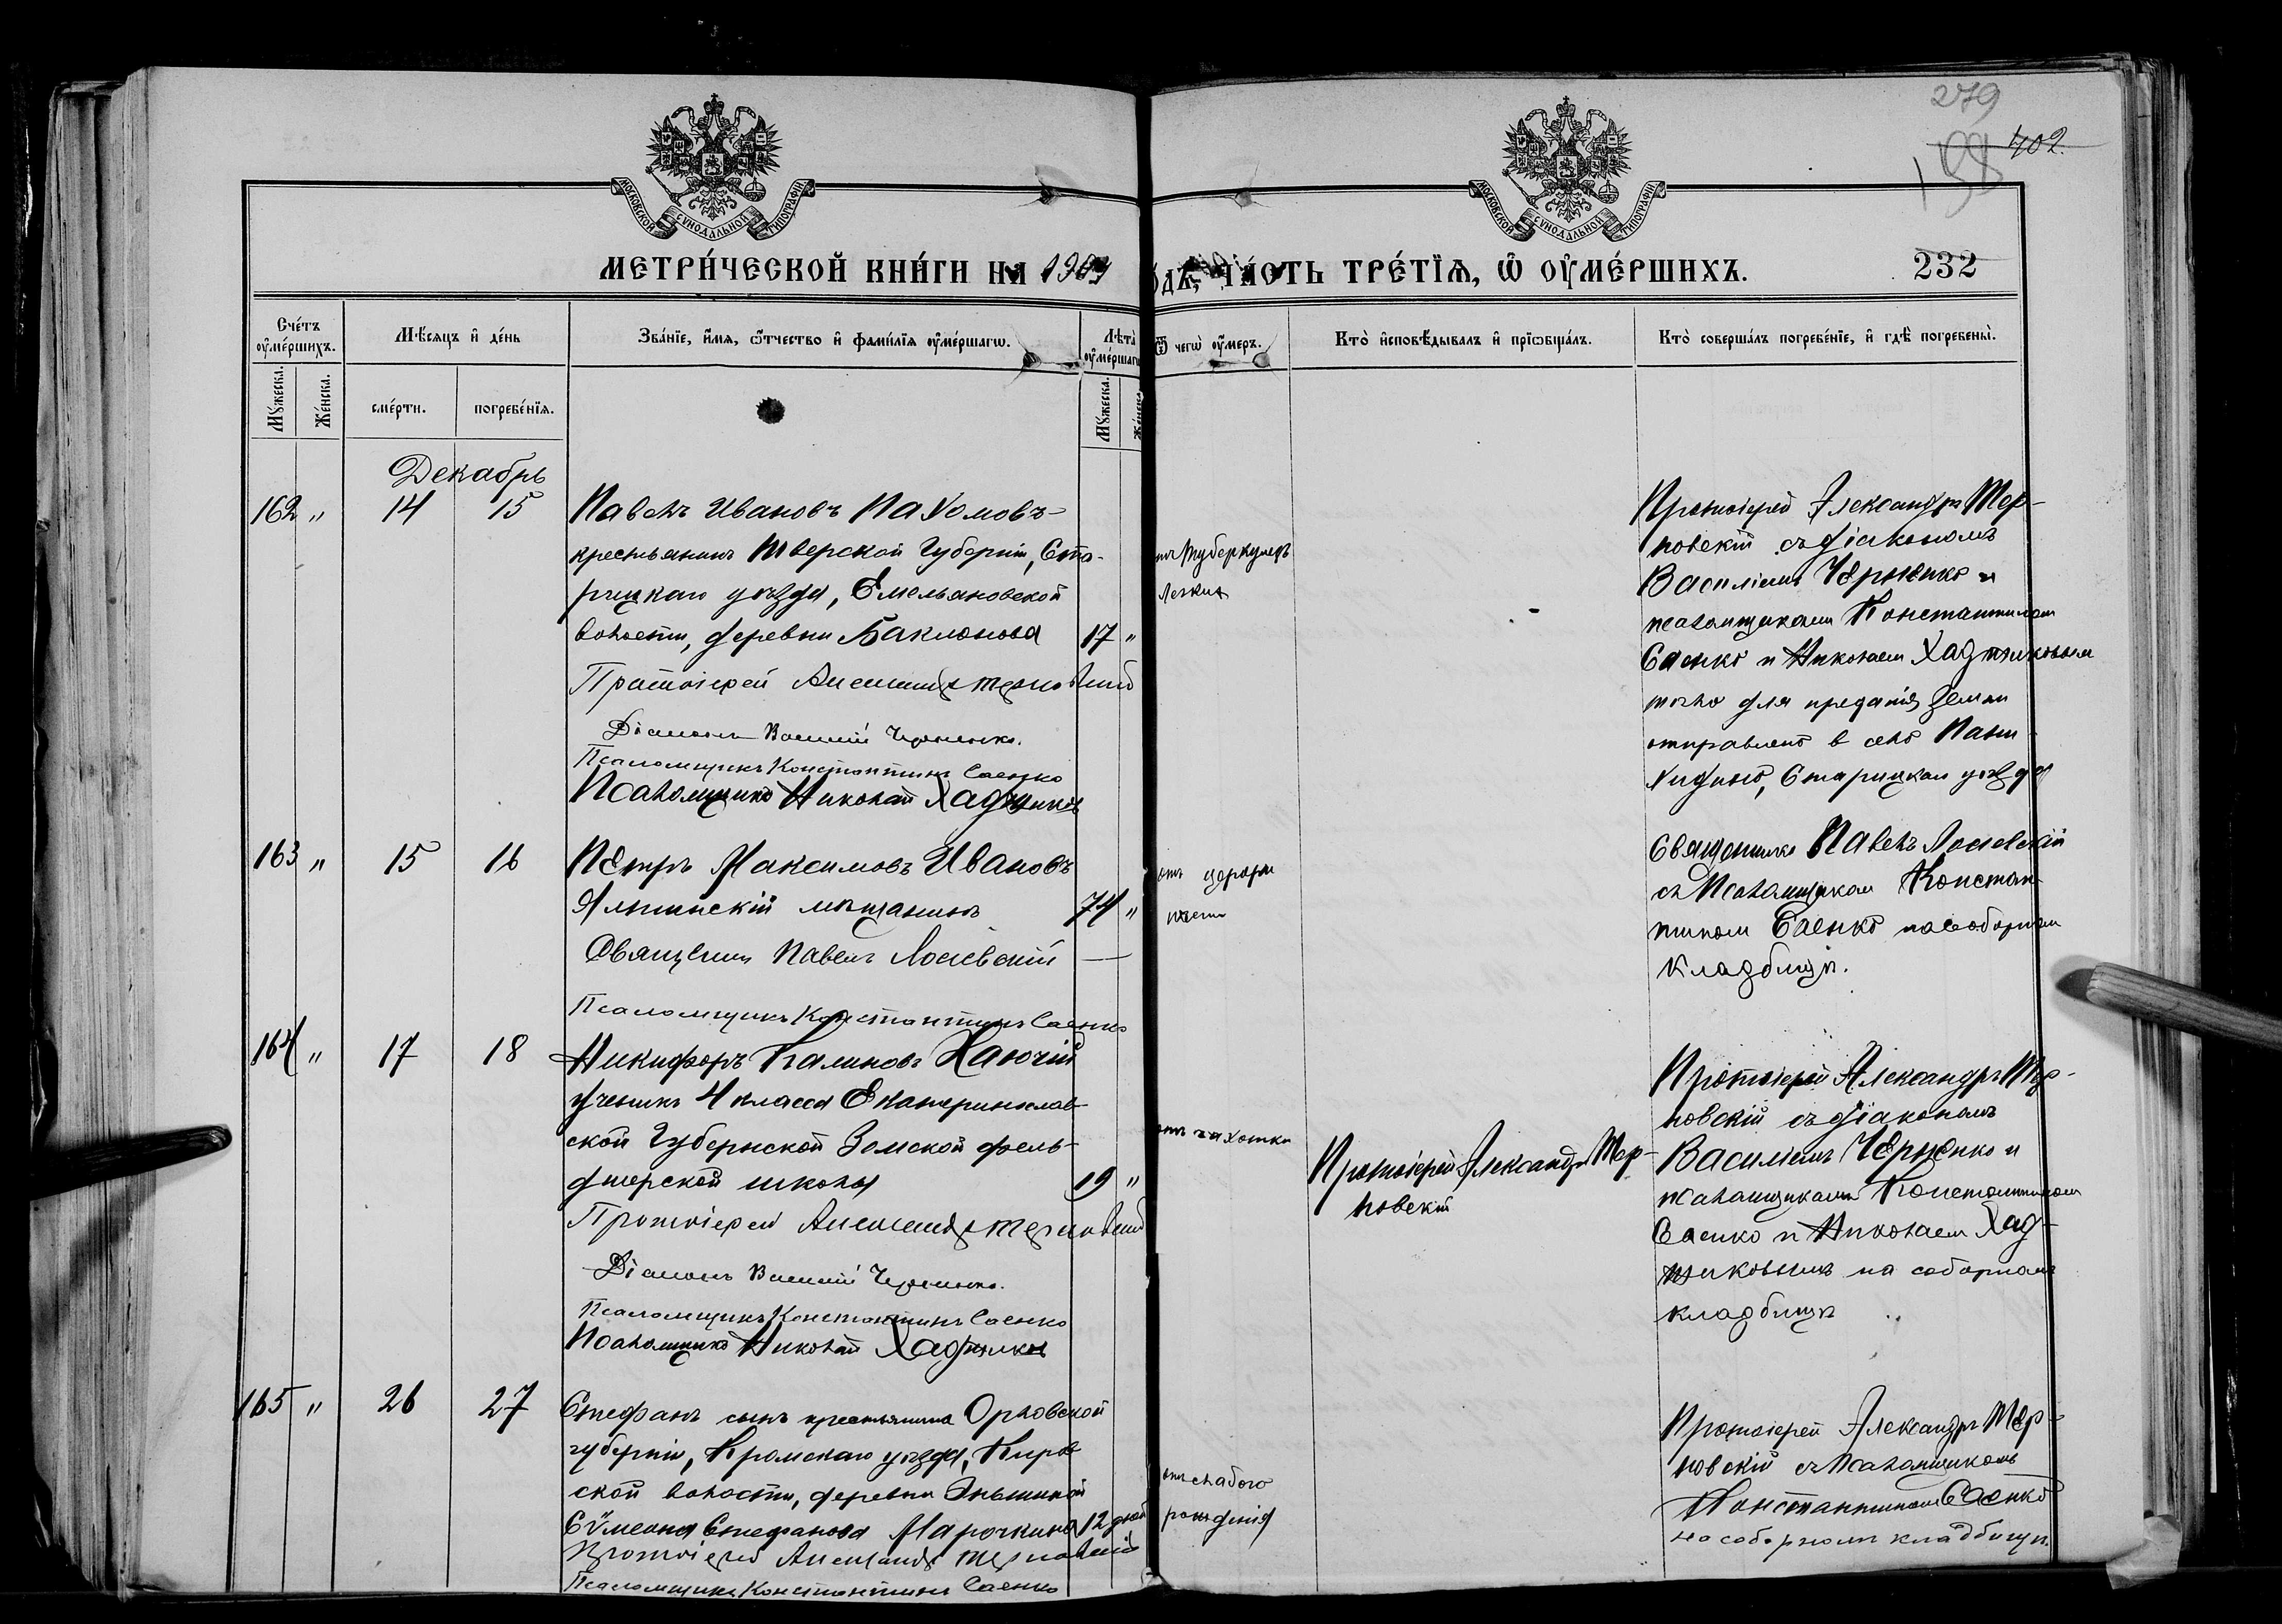 279
198 402.
МОСКОВСКОЙ СѴНОДАЛЬНОЙ ТИПОГРАФІИ
МОСКОВСКОЙ СѴНОДАЛЬНОЙ ТИПОГРАФІИ
МЕТРИ́ЧЕСКОЙ КНИ́ГИ НА 1909
ГОДЪ, ЧА́СТЬ ТРЕ́ТЇѦ, Ѽ ОУ҆МЕ́РШИХЪ.
232
Сче́тъ оу҆ме́ршихъ.
Мѣ́сяцъ и҆ де́нь
Зва́нїе, и҆́мѧ, ѻ҆́тчество и҆ фами́лїѧ оу҆ме́ршагѡ.
Лѣта̀ оу҆ме́ршагѡ
Ѿ чегѡ̀ оу҆́меръ.
Кто̀ и҆сповѣ́дывалъ и҆ прїѡбща́лъ.
Кто̀ соверша́лъ погребе́нїе, и҆ гдѣ̀ погребены̀.
Мꙋ́жеска.
Же́нска.
сме́рти.
погребе́нїѧ.
Мꙋ́жеска.
Же́нска.
Декабрь
162 " 14 15
Павелъ Ивановъ Пахомовъ-
крестьянинъ Тверской Губерніи, Ста-
рицкаго уѣзда, Емельяновской
волости, деревни Баклонова 17 "
Протоіерей Александръ Терновскій
Діаконъ Василій Черненко.
Псаломщикъ Константинъ Саенко
Псаломщикъ Николай Хаджиковъ
отъ туберкулеза
легкихъ
Протоіерей Александръ Тер-
новскій съ діакономъ
Василіемъ Черненко и
псаломщиками Константиномъ
Саенко и Николаемъ Хаджиковымъ
тѣло для преданія земли
отправлено в село
Старицкаго уѣзда
163 " 15 16
Петръ Максимовъ Ивановъ
Ялтинскій мѣщанинъ 74 "
Священникъ Павелъ Лосіевскій
Псаломщикъ Константинъ Саенко
отъ
Священникъ Павелъ Лосіевскій
съ Псаломщикомъ Констан-
тиномъ Саенко на соборномъ
кладбищѣ.
164 " 17 18
Никифоръ Калиновъ Хаючій
ученикъ 4 класса Екатеринослав-
ской Губернской Земской фель-
дшерской школы 19 "
Протоіерей Александръ Терновскій
Діаконъ Василій Черненко.
Псаломщикъ Константинъ Саенко
Псаломщикъ Николай Хаджиковъ
отъ чахотки
Протоіерей Александръ Тер-
новскій
Протоіерей Александръ Тер-
новскій съ діакономъ
Василіемъ Черненко и
псаломщиками Константиномъ
Саенко и Николаемъ Хад-
жиковымъ на соборномъ
кладбищѣ
165 " 26 27
Стефанъ сынъ крестьянина Орловской
губерніи, Кромскаго уѣзда, Киров-
ской волости, деревни
Сѵмеона Стефанова Марочкина 12 дней
Протоіерей Александръ Терновскій
Псаломщикъ Константинъ Саенко
отъ слабого
рожденія
Протоіерей Александръ Тер-
новскій съ Псаломщикомъ
Константиномъ Саенко
на соборномъ кладбищѣ.